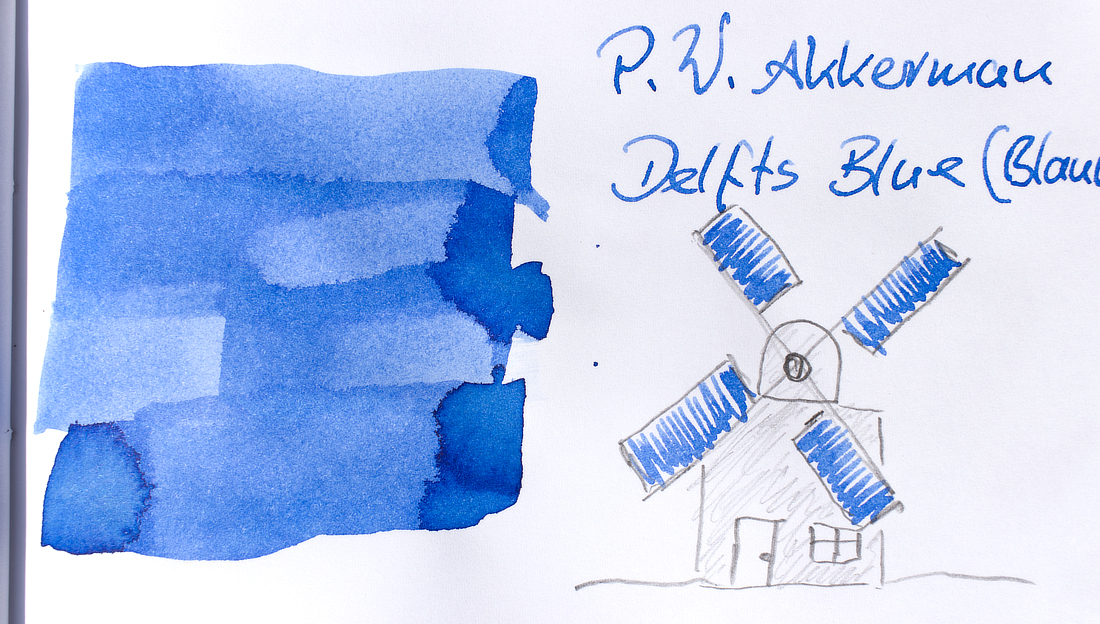 P. W. Akkerman
Delfts Blue (Blau